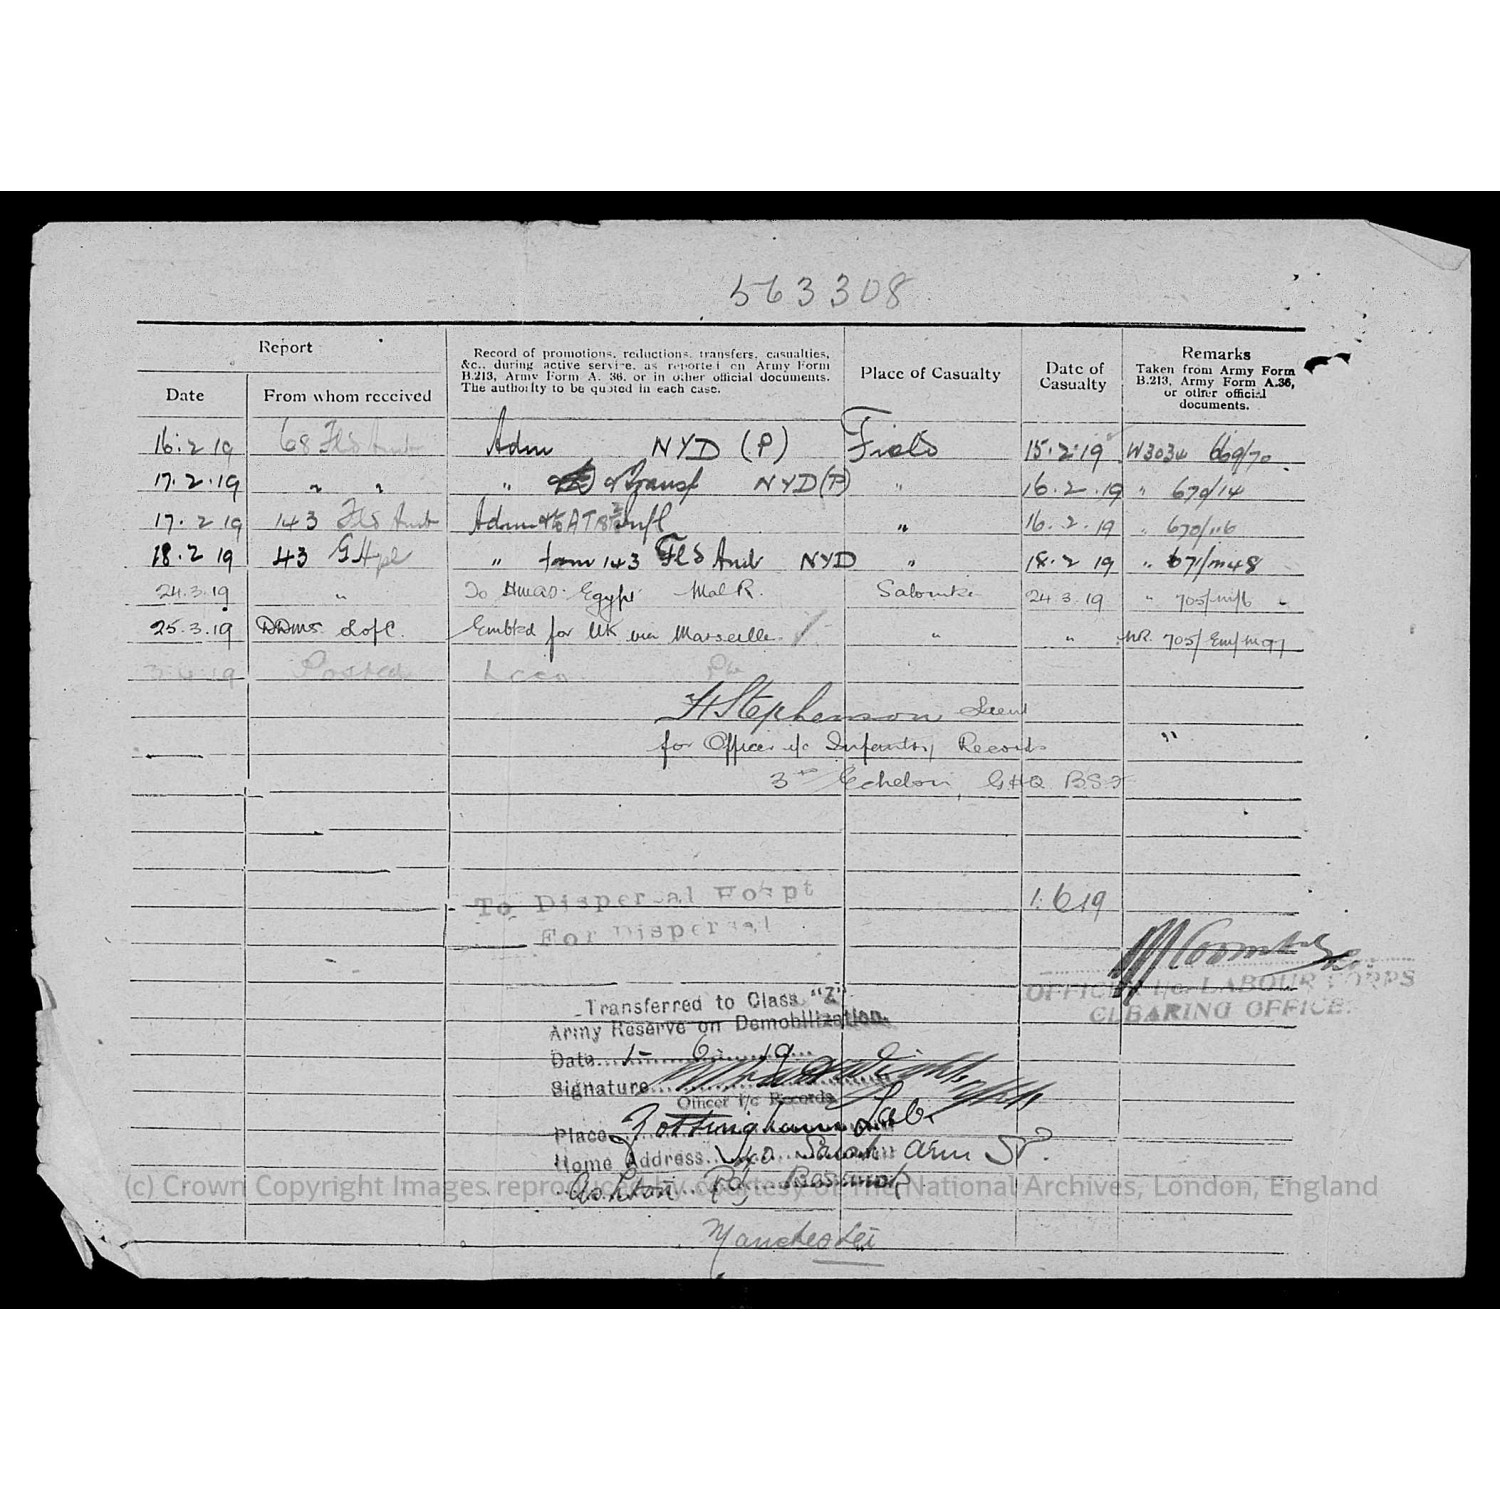 563308
Report
Date
From whom received
Record of promotions, reductions, transfers, casualties, &c., during active service, as reported on Army Form B.213, Army Form A. 36, or in other official documents. The authority to be quoted in each case.
Place of Casualty
Date of Casualty
Remarks
Taken from Army Form B.213, Army Form A.36, or other official documents.
16.2.19 68 Fld Amb Adm NYD (P) Field 15.2.19 W3034 669/70
17.2.19 " " " & transf NYD (P) " 16.2.19 " 670/14
17.2.19 143 Fld Amb Adm " 16.2.19 " 670/116
18.2.19 43 G Hpl " from 143 Fld Amb NYD " 18.2.19 " 671/m48
24.3.19 " To Egypt Mal R. Salonika 24.3.19 "
25.3.19 DDMS. L of C. Embkd for UK via Marseille " " 705/Em/m97
Posted
H Stephenson Lieut
for Officer i/c Infantry Records
3rd Echelon, GHQ B.S.F
To Dispersal Hospt 1.6.19
For Dispersal
OFFICER i/c. LABOUR CORPS
CLEARING OFFICE.
Transferred to Class "Z"
Army Reserve on Demobilization.
Date 1 6 19
Signature
Officer i/c Records
Place Nottingham Lab.
Home Address Sarah Ann St.
Ashton Rd, Beswick
Manchester
(c) Crown Copyright Images reproduced by courtesy of The National Archives, London, England